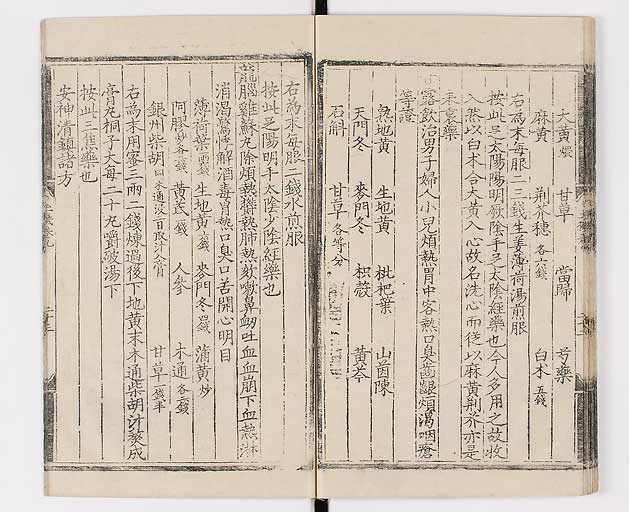 大黃煨 甘草 當歸 芍藥
麻黃 荆芥穗各六錢 白朮五錢
右為末每服二三錢生姜薄荷湯煎服
按此足太陽陽明厥陰手足太陰經藥也今人多用之故收
入然以白朮合大黃入心故名洗心而從以麻黃荆芥亦是
表裏藥
露飲治男子婦人小兒煩熱胃中客熱口臭齒齦煩渴咽瘡
等證
熟地黃 生地黃 枇杷葉 山茵陳
天門冬 麥門冬 枳殼 黃芩
石斛 甘草各等分
右為末每服二錢水煎服
按此足陽明手太陰少陰經藥也
龍腦雞蘇丸除煩熱欝熱肺熱欬嗽鼻衂吐血血崩下血熱淋
消渴驚悸解酒毒胃熱口臭口苦開心明目
薄荷葉 生地黃六錢 麥門冬 蒲黃炒
阿膠炒各二錢 黃芪一錢 人參 木通各二錢
銀州柴胡同木通 甘草一錢半
右為末用蜜三兩二錢煉過後下地黃末木通柴胡汁熬成
膏丸桐子大每二十丸嚼破湯下
按此三焦藥也
安神清鎮諸方